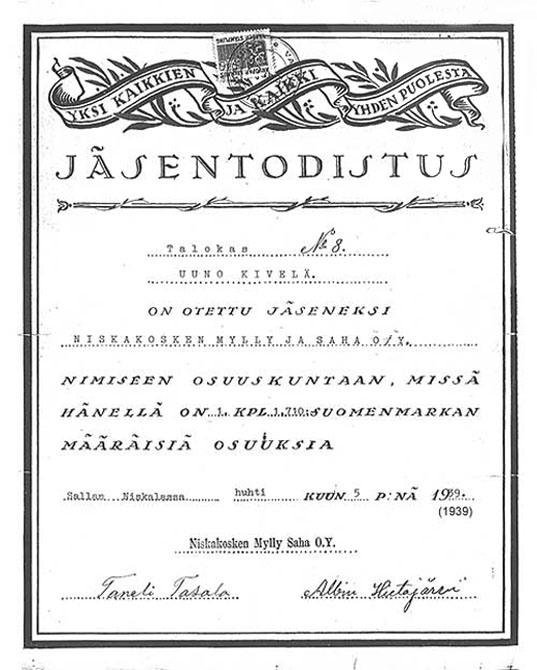 YKSI KAIKKIEN JA KAIKKI YHDEN PUOLESTA
JÄSENTODISTUS
Talokas No 8.
UUNO KIVELÄ.
ON OTETTU JÄSENEKSI
NISKAKOSKEN MYLLY JA SAHA O/Y.
NIMISEEN OSUUSKUNTAAN, MISSÄ
HÄNELLÄ ON 1. KPL 1.710: SUOMENMARKAN
MÄÄRÄISIÄ OSUUKSIA
Sallan Niskalassa huhti KUUN 5 P:NÄ 1939.
(1939)
Niskakosken Mylly Saha O.Y.
Taneli Tasala Albin Hietajärvi